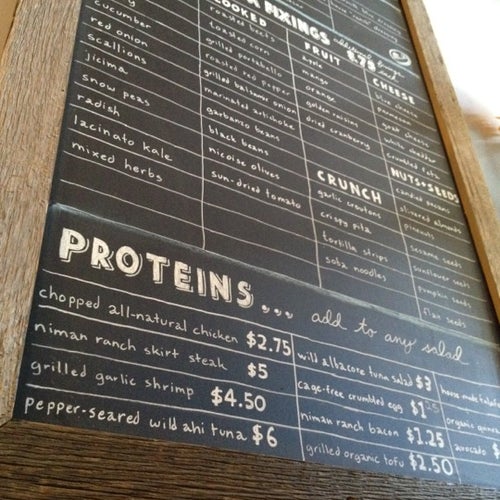 FIXINGS
additional fixings
$.75 each
cucumber
red onion
scallions
jicima
snow peas
radish
lacinato kale
mixed herbs
COOKED
roasted beets
toasted corn
grilled portobello
roasted red pepper
grilled balsamic onion
marinated artichoke
garbanzo beans
black beans
nicoise olives
sun-dried tomato
FRUIT
apple
mango
orange
golden raisins
dried cranberry
CRUNCH
garlic croutons
crispy pita
tortilla strips
soba noodles
CHEESE
blue cheese
parmesan
goat cheese
white cheddar
crumbled feta
NUTS+SEEDS
candied pecans
slivered almonds
pinenuts
sesame seeds
sunflower seeds
pumpkin seeds
flax seeds
PROTEINS... add to any salad
chopped all-natural chicken $2.75
niman ranch skirt steak $5
grilled garlic shrimp $4.50
pepper-seared wild ahi tuna $6
wild albacore tuna salad $3
cage-free crumbled egg $1.25
niman ranch bacon $1.25
grilled organic tofu $2.50
house-made
organic
avocado $